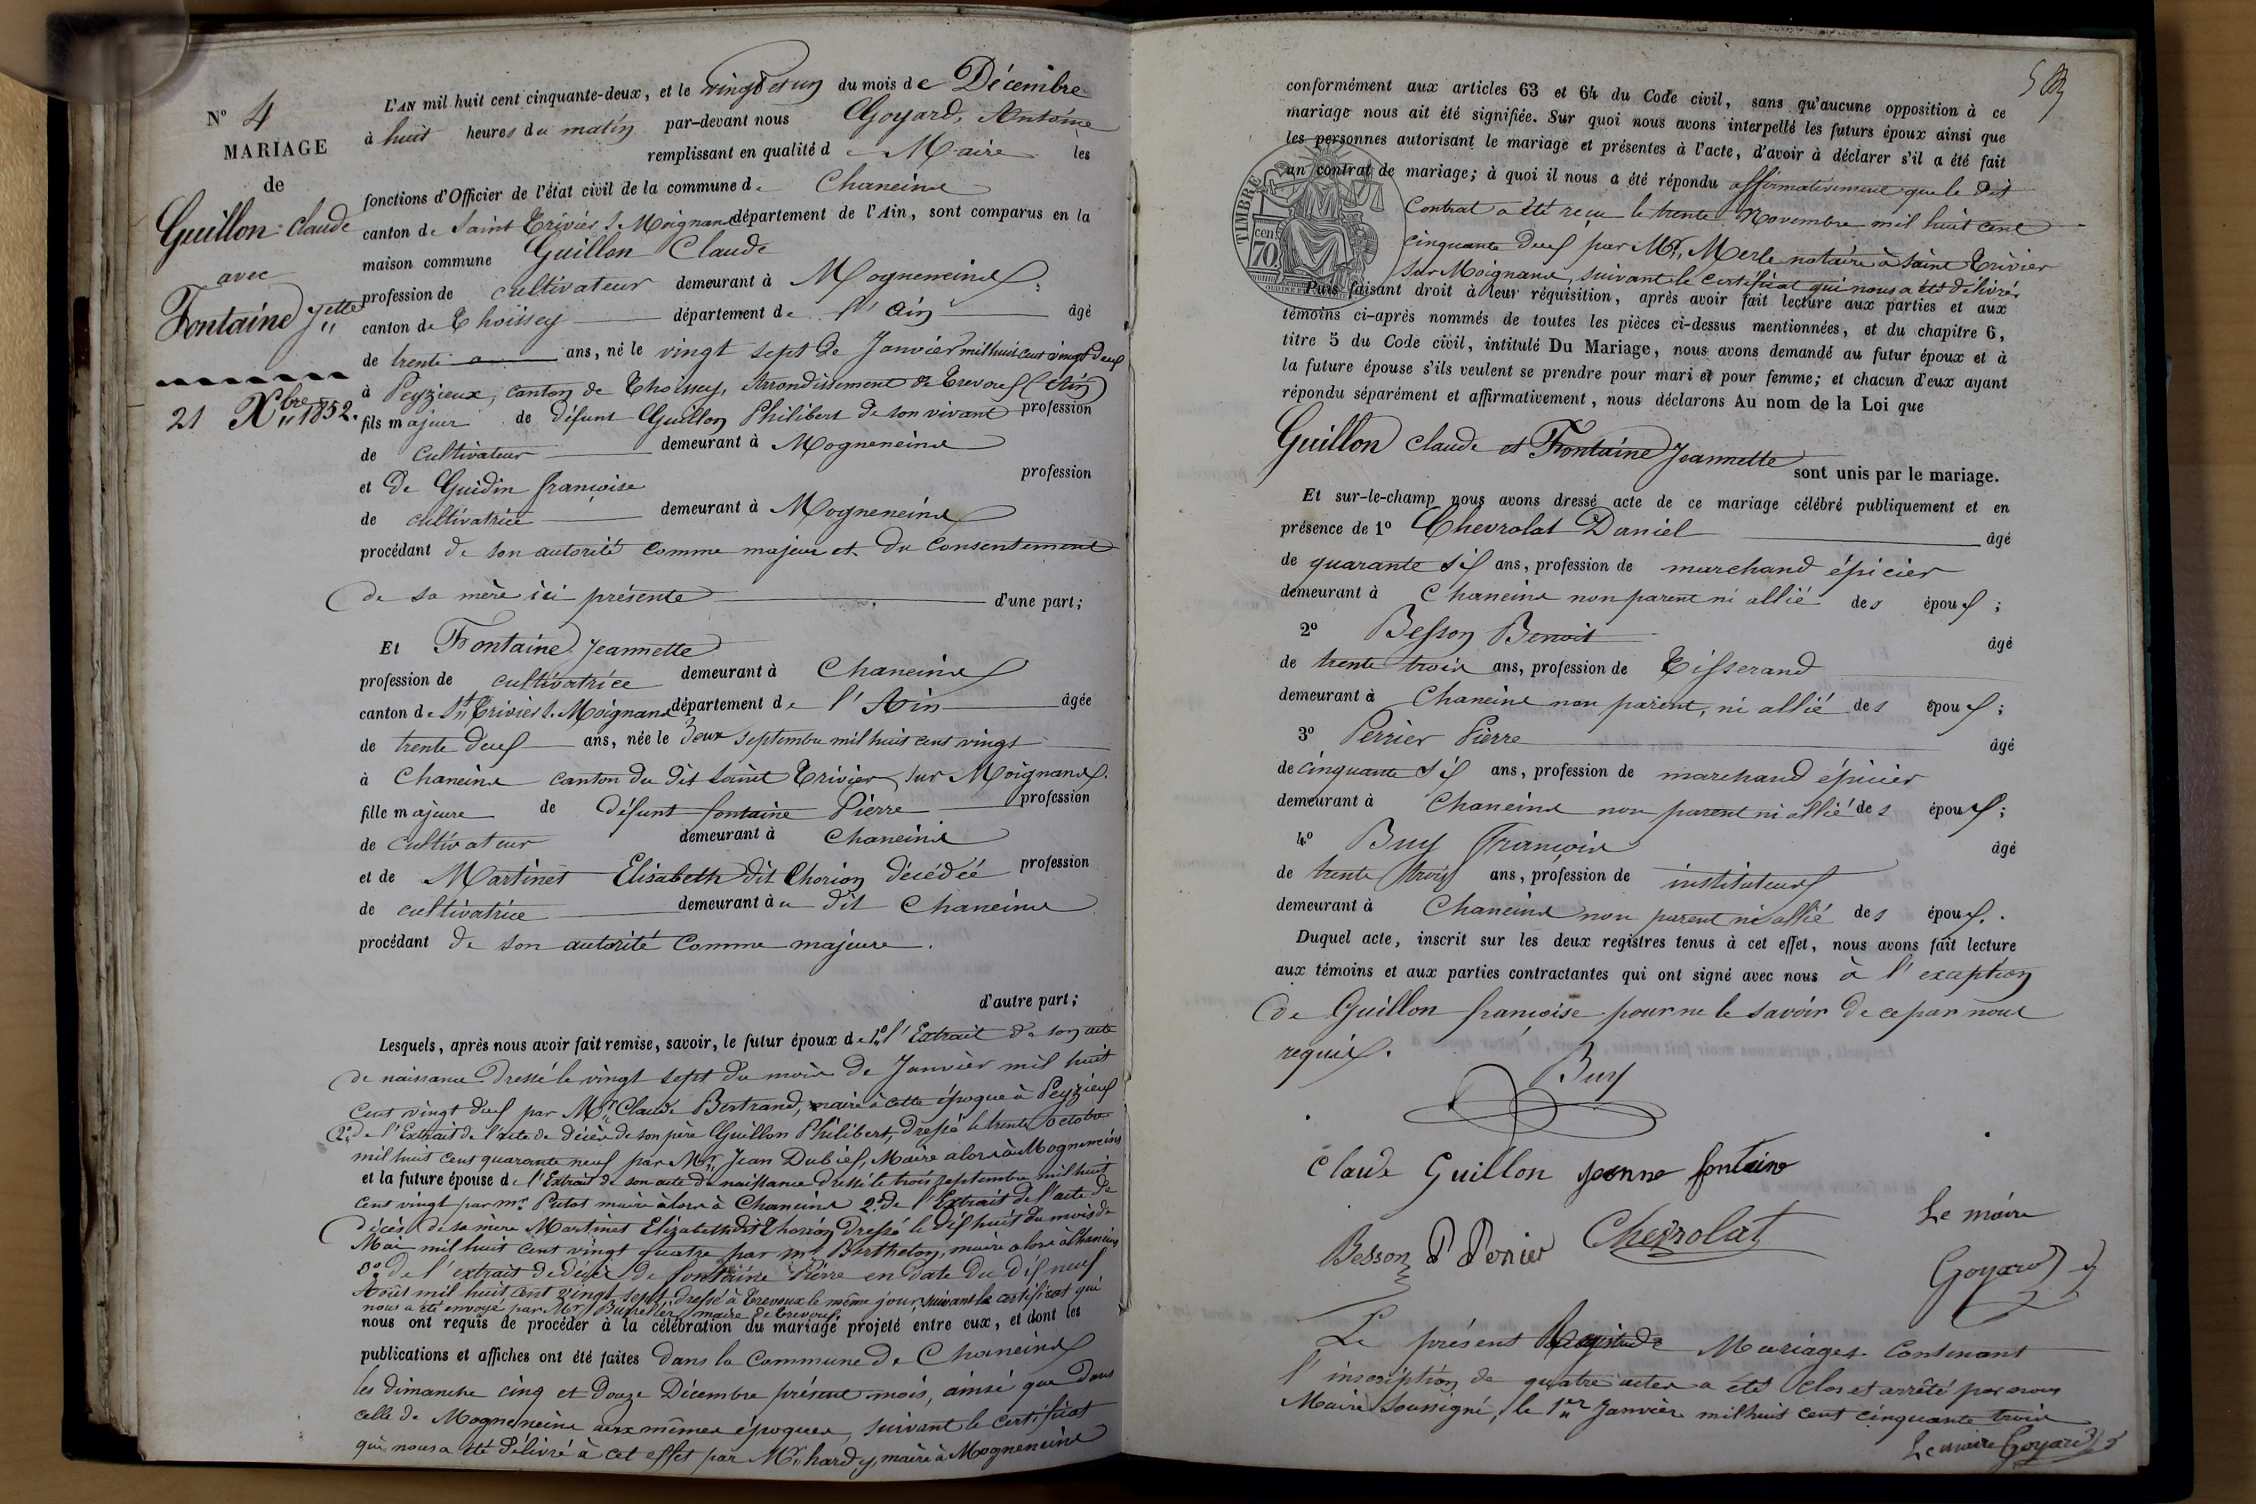 N° 4
MARIAGE
de
Guillon Claude
avec
Fontaine Jette
21 Xbre 1852.
L'AN mil huit cent cinquante-deux, et le vingt et un du mois de Décembre
à huit heures du matin par-devant nous Goyard, Antoine
remplissant en qualité de Maire les
fonctions d'Officier de l'état civil de la commune de Chaneins
canton de Saint Trivier s. Moignans département de l'Ain, sont comparus en la
maison commune Guillon Claude
profession de cultivateur demeurant à Mogneneins
canton de Thoissey département de l'Ain âgé
de trente ans, né le vingt sept de Janvier mil huit cent vingt deux
à Peyzieux, canton de Thoissey, Arrondissement de Trevoux (Ain)
fils majeur de défunt Guillon Philibert de son vivant profession
de cultivateur demeurant à Mogneneins
et de Guidin françoise profession
de cultivatrice demeurant à Mogneneins
procédant de son autorité comme majeur et du consentement
de sa mère ici présente d'une part;
Et Fontaine Jeannette
profession de cultivatrice demeurant à Chaneins
canton de St Trivier s. Moignans département de l'Ain âgée
de trente deux ans, née le deux septembre mil huit cent vingt
à Chaneins canton du dit saint Trivier sur Moignans.
fille majeure de défunt fontaine Pierre profession
de cultivateur demeurant à Chaneins
et de Martinet Elisabeth dit Chorion décédée profession
de cultivatrice demeurant à u dit Chaneins
procédant de son autorité comme majeure.
d'autre part;
Lesquels, après nous avoir fait remise, savoir, le futur époux de 1° l'Extrait de son acte
de naissance dressé le vingt sept du mois de Janvier mil huit
cent vingt deux par Mr Claude Bertrand, maire à cette époque à Peyzieux
2° de l'Extrait de l'acte de décès de son père Guillon Philibert, dressé le trente octobre
mil huit cent quarante neuf par Mr Jean Dubief, Maire alors à Mogneneins
et la future épouse de l'Extrait de son acte de naissance dressé le trois septembre mil huit
cent vingt par mr Putot maire alors à Chaneins 2° de l'Extrait de l'acte de
décès de sa mère Martinet Elizabeth dit Chorion dressé le dix huit du mois de
Mai mil huit cent vingt quatre par mr Berthelon, maire alors à Chaneins
3° de l'extrait de décès de fontaine Pierre en date du dix neuf
Août mil huit cent vingt sept dressé à Trevoux le même jour, suivant le certificat qui
nous a été envoyé par Mr maire de Trevoux
nous ont requis de procéder à la célébration du mariage projeté entre eux, et dont les
publications et affiches ont été faites dans la commune de Chaneins
les dimanche cinq et douze Décembre présent mois, ainsi que dans
celle de Mogneneins aux mêmes époques, suivant le certificat
qui nous a été délivré à cet effet par Mr hardy, maire à Mogneneins
conformément aux articles 63 et 64 du Code civil, sans qu'aucune opposition à ce
mariage nous ait été signifiée. Sur quoi nous avons interpellé les futurs époux ainsi que
les personnes autorisant le mariage et présentes à l'acte, d'avoir à déclarer s'il a été fait
un contrat de mariage; à quoi il nous a été répondu affirmativement que le dit
contrat a été reçu le trente Novembre mil huit cent
cinquante deux par Mtre Merle notaire à saint Trivier
sur Moignans, suivant le certificat qui nous a été délivré
TIMBRE
70 cent
Puis faisant droit à leur réquisition, après avoir fait lecture aux parties et aux
témoins ci-après nommés de toutes les pièces ci-dessus mentionnées, et du chapitre 6,
titre 5 du Code civil, intitulé Du Mariage, nous avons demandé au futur époux et à
la future épouse s'ils veulent se prendre pour mari et pour femme; et chacun d'eux ayant
répondu séparément et affirmativement, nous déclarons Au nom de la Loi que
Guillon Claude et Fontaine Jeannette
sont unis par le mariage.
Et sur-le-champ nous avons dressé acte de ce mariage célébré publiquement et en
présence de 1° Chevrolat Daniel âgé
de quarante six ans, profession de marchand épicier
demeurant à Chaneins non parent ni allié des époux;
2° Besson Benoit âgé
de trente trois ans, profession de Tisserand
demeurant à Chaneins non parent, ni allié des époux;
3° Perrier Pierre âgé
de cinquante six ans, profession de marchand épicier
demeurant à Chaneins non parent ni allié des époux;
4° Buy François âgé
de trente trois ans, profession de instituteur
demeurant à Chaneins non parent ni allié des époux.
Duquel acte, inscrit sur les deux registres tenus à cet effet, nous avons fait lecture
aux témoins et aux parties contractantes qui ont signé avec nous à l'exception
de Guillon françoise pour ne le savoir de ce par nous
requis.
Buy
Claude Guillon Jeanne fontaine
Besson P Perier Chevrolat Le maire
Goyard
Le présent Registre de Mariages contenant
l'inscription de quatre actes a été clos et arrêté par nous
Maire soussigné, le 1er Janvier mil huit cent cinquante trois
Le maire Goyard